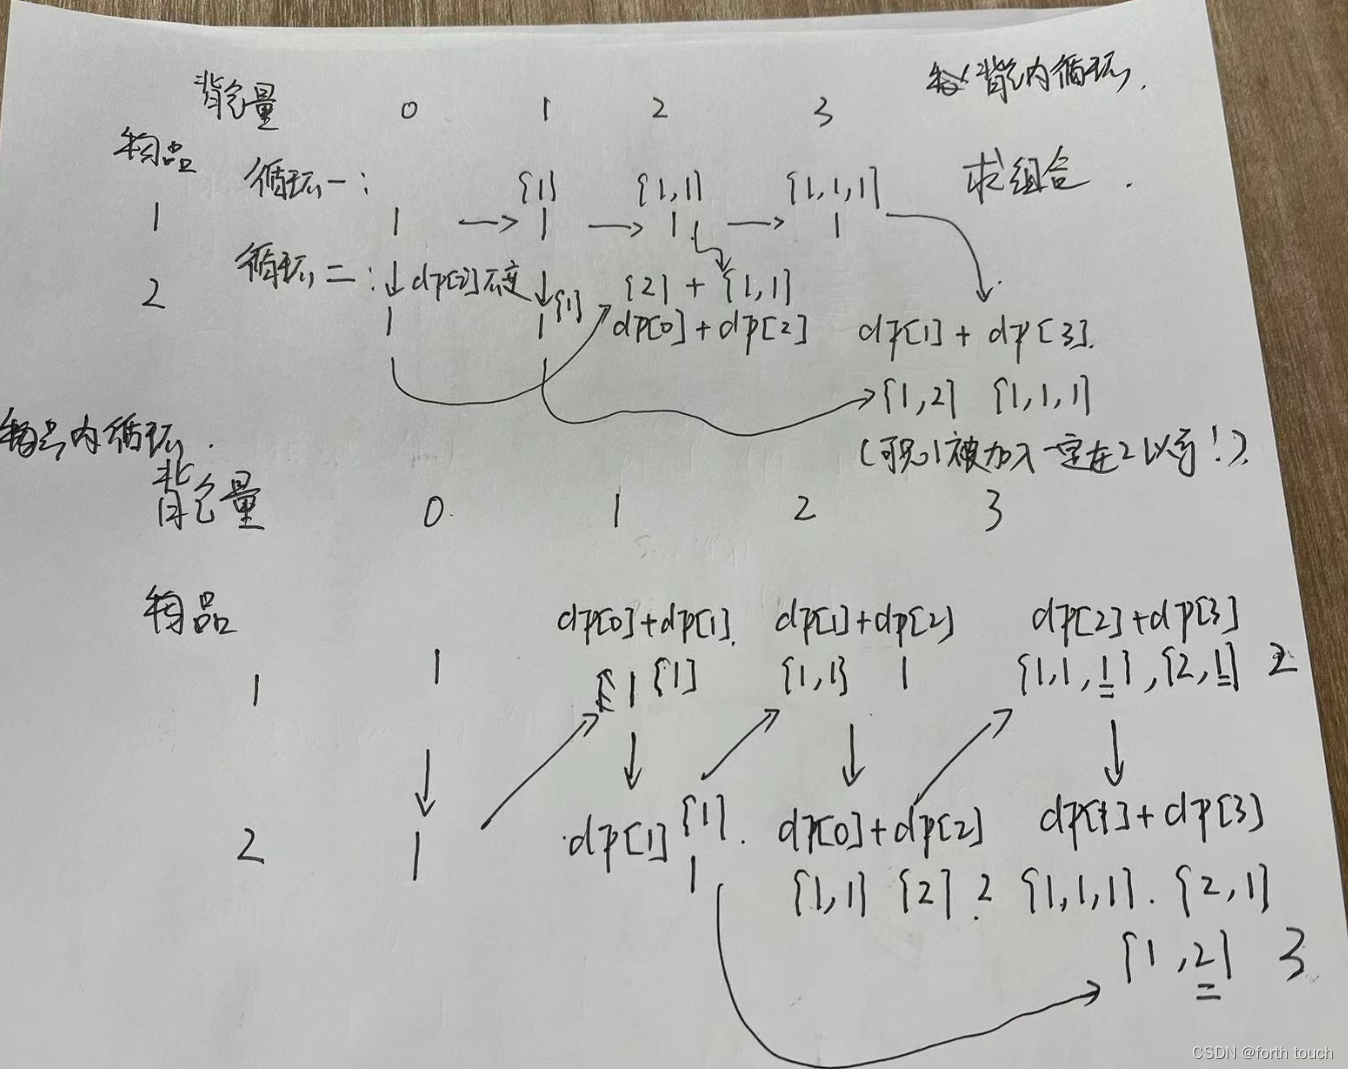 背包量 0 1 2 3 背包内循环.
物品 循环一: {1} {1,1} {1,1,1} 求组合.
1 1 → 1 → 1 → 1
循环二: ↓ dp[2]不变 ↓ {1} {2} + {1,1}
2 1 1 dp[0]+dp[2] dp[1]+dp[3].
{1,2} {1,1,1}
(可见1被加入一定在2以前!).
物品内循环.
背包量 0. 1 2 3
物品 dp[0]+dp[1]. dp[1]+dp[2] dp[2]+dp[3]
1 1 1 {1} {1,1} 1 {1,1,1},{2,1} 2
2 1 dp[1] {1}. dp[0]+dp[2] dp[1]+dp[3]
1 {1,1} {2}. 2 {1,1,1}. {2,1}
{1,2} 3
CSDN @forth touch